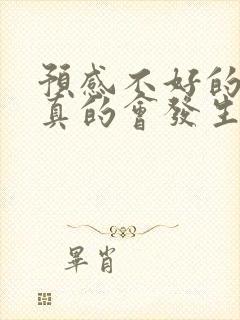 預感不好的
真的會發生
畢肖